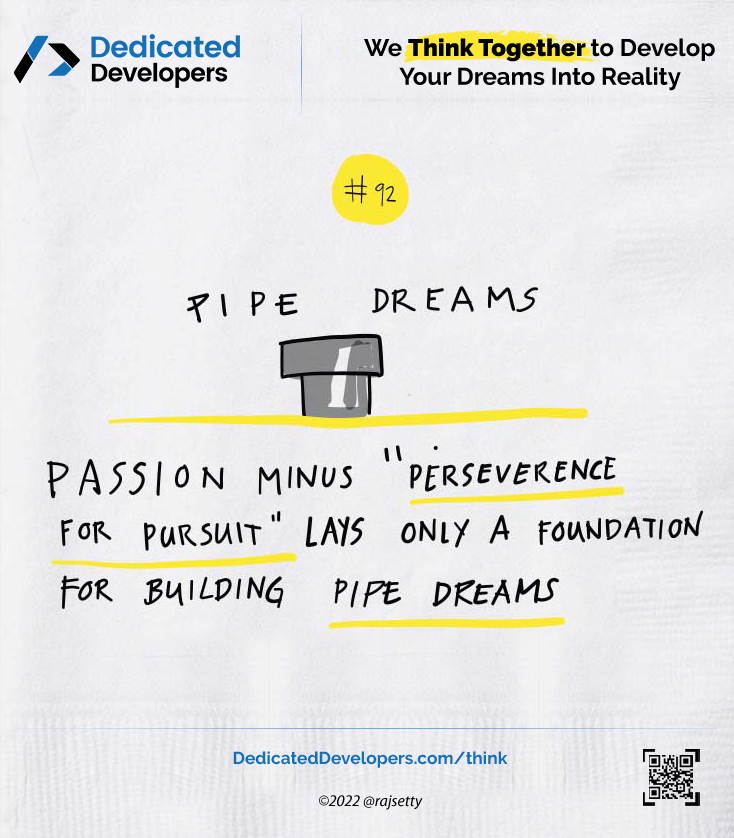 Dedicated
Developers
We Think Together to Develop
Your Dreams Into Reality
#92
PIPE DREAMS
PASSION MINUS "PERSEVERENCE
FOR PURSUIT" LAYS ONLY A FOUNDATION
FOR BUILDING PIPE DREAMS
DedicatedDevelopers.com/think
©2022 @rajsetty